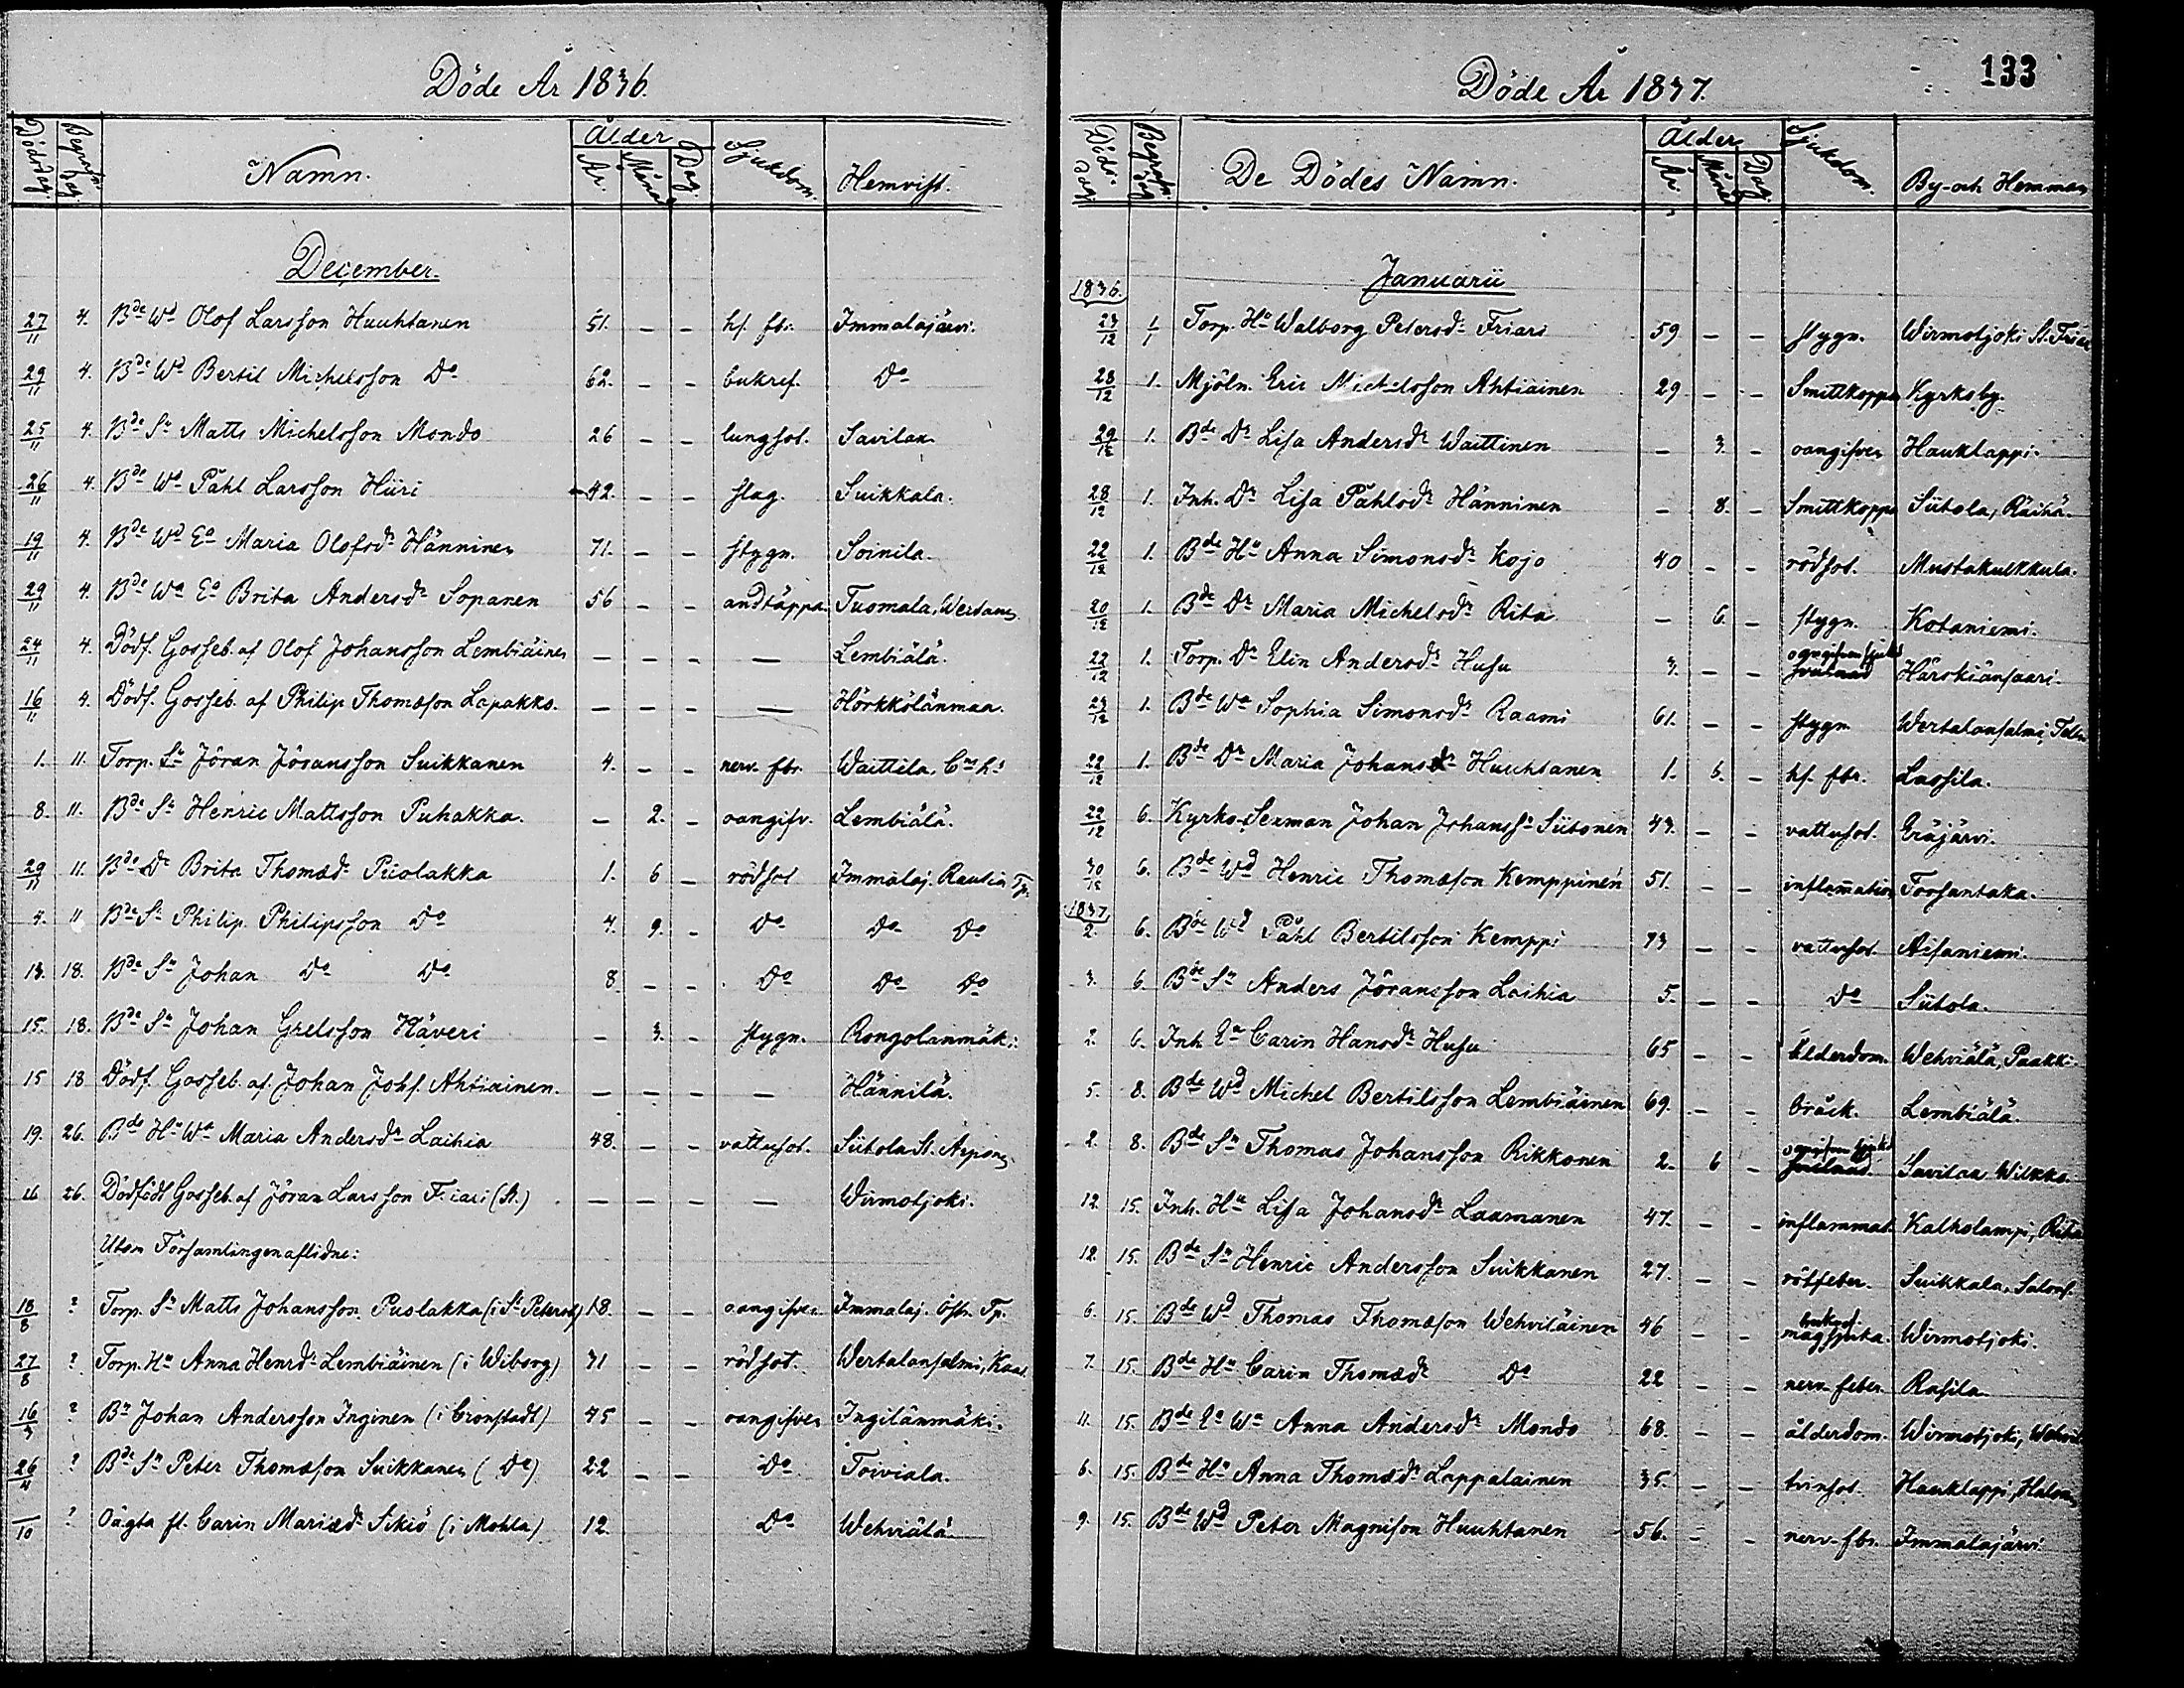 Döde År 1836.
Dödsdag. Begrafn. dag Namn. Ålder År. Månad Dag. Sjukdom. Hemvist.
December.
27/11 4. Bde Wd Olof Larsson Huuhtanen 51. - - hf. fbr. Immalajärvi.
29/11 4. Bde Wd Bertil Michelsson Do 62. - - bukref. Do
25/11 4. Bde Sn Matts Michelsson Mondo 26 - - lungsot. Savilax.
26/11 4. Bde Wd Påhl Larsson Hiiri 42. - - slag. Suikkala.
19/11 4. Bde Wd Ea Maria Olofsdr Hänninen 71. - - stygn. Soinila.
29/11 4. Bde Wd Ea Brita Andersdr Sopanen 56 - - andtäppa Tuomala,
24/11 4. Dödf. Gosseb. af Olof Johansson Lembiäinen - - - - Lembiälä.
16/11 4. Dödf. Gosseb. af Philip Thomæson Lapakko. - - - - Hörkkölänmaa.
1. 11. Torp. Sn Jöran Jöransson Suikkanen 4. - - nerv. fbr. Waittila,
8. 11. Bde Sn Henric Mattsson Puhakka. - 2. - oangifv. Lembiälä.
29/11 11. Bde Dr Brita Thomædr Puolakka 1. 6 - rödsot Immalaj. Rautia Tp.
4. 11 Bde Sn Philip Philipsson Do 4. 9. - Do Do Do
13. 18. Bde Sn Johan Do Do 8. - - Do Do Do
15. 18. Bde Sn Johan Grelsson Häveri - 3. - stygn. Rongolanmäki
15 18 Dödf. Gosseb. af Johan Johs. Ahtiainen. - - - - Hännilä.
19. 26. Bde Hu Wa Maria Andersdr Laihia 48. - - vattusot. Siitola St.
26 26. Dödfödt Gosseb. af Jöran Larsson Friari (St.) - - - - Wirmotjoki.
Utom Församlingen aflidne:
18/8 ? Torp. Sn Matts Johansson Puolakka (i St Petersb) 18. - - oangifven Immalaj. Öst. Tp.
27/8 ? Torp. Hu Anna Henrdr Lembiäinen (i Wiborg) 31 - - rödsot. Wertalansalmi,
16/3 ? Bn Johan Andersson Inginen (i Cronstadt) 45 - - oangifven Ingilänmäki.
26/11 ? Bde Sn Peter Thomæson Suikkanen (Do) 22 - - Do Toiviala.
/10 ? Oägta fl. Carin Mariædr Sikiö (i Mohla) 12. Do Wehviälä.
133
Döde År 1837.
Döds-dag Begrafn. dag De Dödes Namn. Ålder År Månad Dag. Sjukdom. By- och Hemman
Januarii
1836.
23/12 1/1 Torp. Hu Walborg Petersdr Friari 59 - - stygn. Wirmotjoki St. Friar
28/12 1. Mjöln. Eric Michelsson Ahtiainen 29 - - Smittkoppor Kyrkoby.
29/12 1. Bde Dr Lisa Andersdr Waittinen - 3. - oangifven Hauklappi.
28/12 1. Inh. Dr Lisa Påhlsdr Hänninen - 8. - Smittkopp Siitola, Räihä.
22/12 1. Bde Hu Anna Simonsdr Kojo 40 - - rödsot. Mustakulkkula.
20/12 1. Bde Dr Maria Michelsdr Rita - 6 - stygn. Kotaniemi.
22/12 1. Torp. Dr Elin Andersdr Husu 3. - - ogngifven sjukd Härskiänsaari.
23/12 1. Bde Wa Sophia Simonsdr Raami 61. - - stygn Wertalansalmi,
22/12 1. Bde Dr Maria Johansdr Huuhtanen 1. 6. - hf. fbr. Lassila.
22/12 6. Kyrko-Sexman Johan Johansson Siitonen 43. - - vattusot. Eräjärvi.
30/12 6. Bde Wd Henric Thomæson Kemppinen 51. - - inflammation Torsantaka.
1837
2. 6. Bde Wd Påhl Bertilsson Kemppi 73 - - vattusot. Aisaniemi.
3. 6. Bde Sn Anders Jöransson Laihia 5. - - Do Siitola.
2. 6. Inh. Ea Carin Hansdr Husu 65 - - ålderdom. Wehviälä, Paakki.
5. 8. Bde Wd Michel Bertilsson Lembiäinen 69. - - bråck. Lembiälä.
2. 8. Bde Sn Thomas Johansson Rikkonen 2. 6 - Savilax Wilkko.
12. 15. Inh. Hu Lisa Johansdr Laamanen 47. - - inflammat. Kalholampi, Rita
12. 15. Bde Sn Henric Andersson Suikkanen 27. - - rötfeber. Suikkala,
6. 15. Bde Wd Thomas Thomæson Wehviläinen 46 - - bukref magsjuka. Wirmotjoki.
7. 15. Bde Hu Carin Thomædr Do 22 - - nerv-feber. Rasila
11. 15. Bde Ea Wa Anna Andersdr Mondo 68. - - ålderdom. Wirmotjoki,
6. 15. Bde Hu Anna Thomædr Lappalainen 35. - - tvinsot. Hauklappi,
9. 15. Bde Wd Peter Magnison Huuhtanen 56. - - nerv-fbr. Immalajärvi